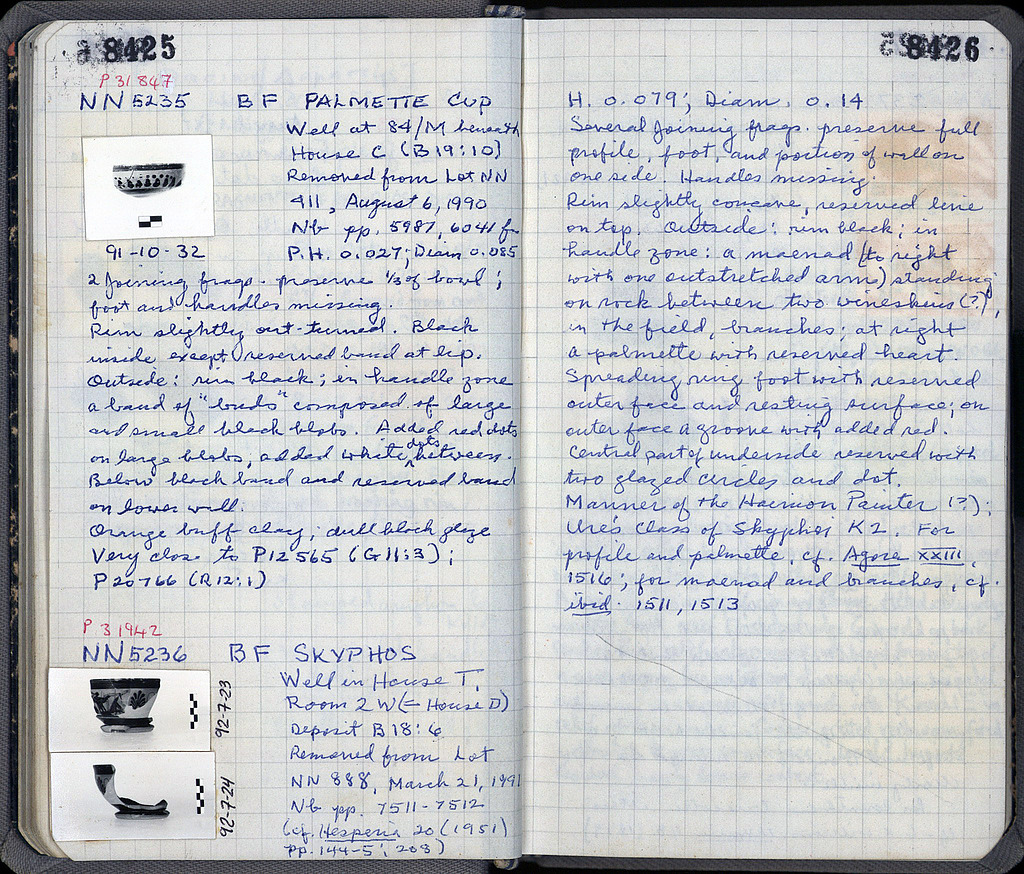 8425
P 31847
NN 5235 BF PALMETTE CUP
Well at 84/M beneath
House C (B19:10)
Removed from Lot NN
411, August 6, 1990
Nb pp. 5987, 6041 f.
91-10-32
P.H. 0.027; Diam 0.085
2 joining frags. preserve 1/3 of bowl;
foot and handles missing.
Rim slightly out-turned. Black
inside except reserved band at lip.
Outside: rim black; in handle zone
a band of "buds" composed of large
and small black blobs. Added red dots
on large blobs, added white dots between.
Below black band and reserved band
on lower wall.
Orange buff clay; dull black glaze
Very close to P12565 (G11:3);
P20766 (R12:1)
P 31942
NN 5236 BF SKYPHOS
92-7-23
92-7-24
Well in House T,
Room 2 W (= House D)
Deposit B 18:6
Removed from Lot
NN 888, March 21, 1991
Nb pp. 7511-7512
(cf. Hesperia 20 (1951)
pp. 144-5; 208)
8426
H. 0.079; Diam. 0.14
Several joining frags. preserve full
profile, foot, and portion of wall on
one side. Handles missing.
Rim slightly concave, reserved line
on top. Outside: rim black; in
handle zone: a maenad (to right
with one outstretched arm) standing
on rock between two wineskins (?);
in the field, branches; at right
a palmette with reserved heart.
Spreading ring foot with reserved
outer face and resting surface; on
outer face a groove with added red.
Central part of underside reserved with
two glazed circles and dot.
Manner of the Haimon Painter (?);
Ure's Class of Skyphoi K2. For
profile and palmette, cf. Agora XXIII,
1516; for maenad and branches, cf.
ibid. 1511, 1513